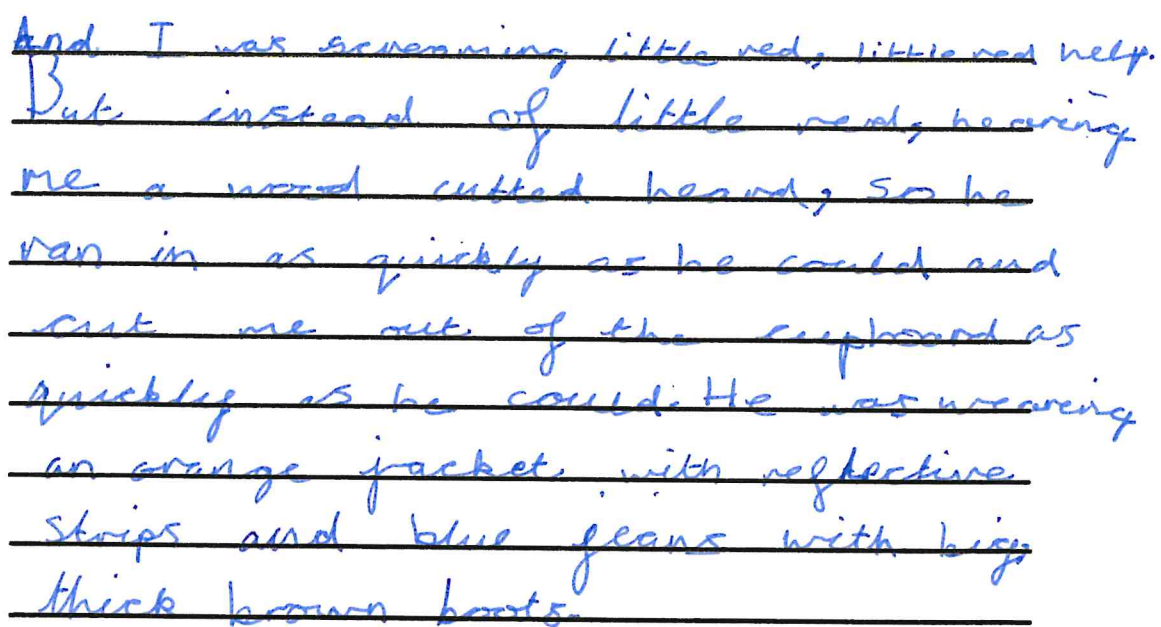 And I was screaming little red, little red help.
But instead of little red, hearing
me a wood cutted heard, so he
ran in as quickly as he could and
cut me out of the cupboard as
quickly as he could. He was wearing
an orange jacket with reflective
strips and blue jeans with big,
thick brown boots.